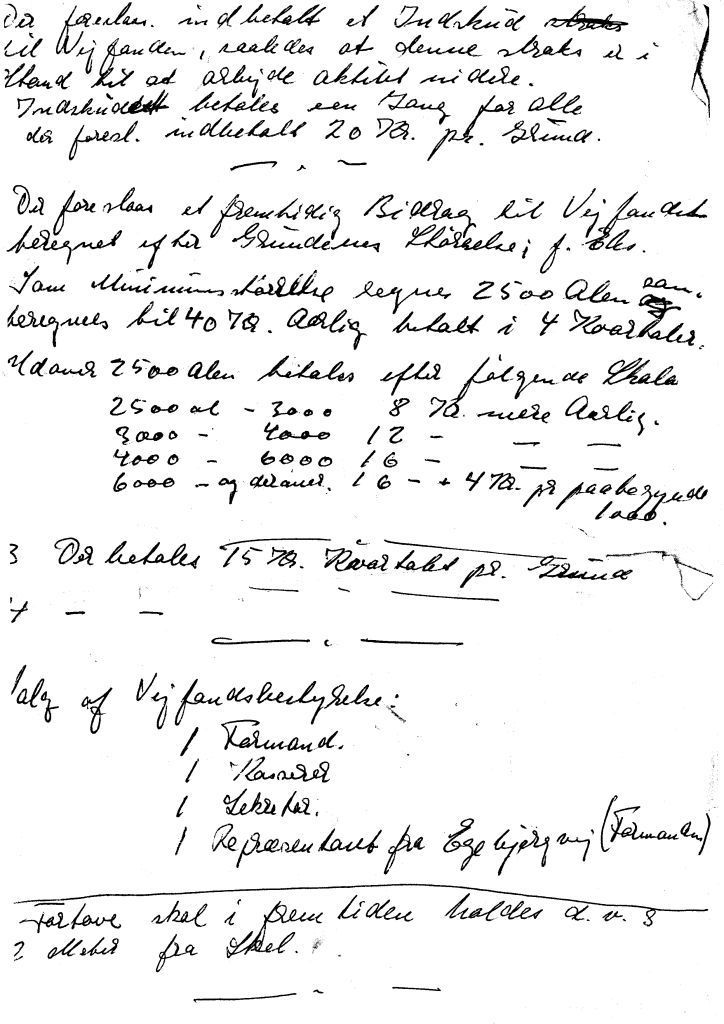 Der foreslaas indbetalt et Indskud straks
til Vejfonden, saaledes at denne straks er i
Stand til at arbejde aktivt videre.
Indskudet betales een Gang for alle
der foresl. indbetalt 20 Kr. pr. Grund.
Der foreslaas et fremtidig Bidrag til Vejfondet
beregnet efter Grundenes Størrelse; f. Eks.
Som Minimumsstørrelse regnes 2500 Alen som
beregnes til 40 Kr. Aarlig betalt i 4 Kvartaler.
Udover 2500 Alen betales efter følgende Skala
2500 al - 3000 8 Kr. mere Aarlig.
3000 - 4000 12 - — —
4000 - 6000 16 - — —
6000 - og derover. 16 - + 4 Kr. pr paabegynde
1000.
3 Der betales 15 Kr. Kvartalet pr. Grund
4 — —
Valg af Vejfondsbestyrelse:
1 Formand.
1 Kasserer
1 Sekretær.
1 Repræsentant fra Egebjergvej (Formanden)
Fortove skal i fremtiden holdes d. v. s
2 Meter fra Skel.